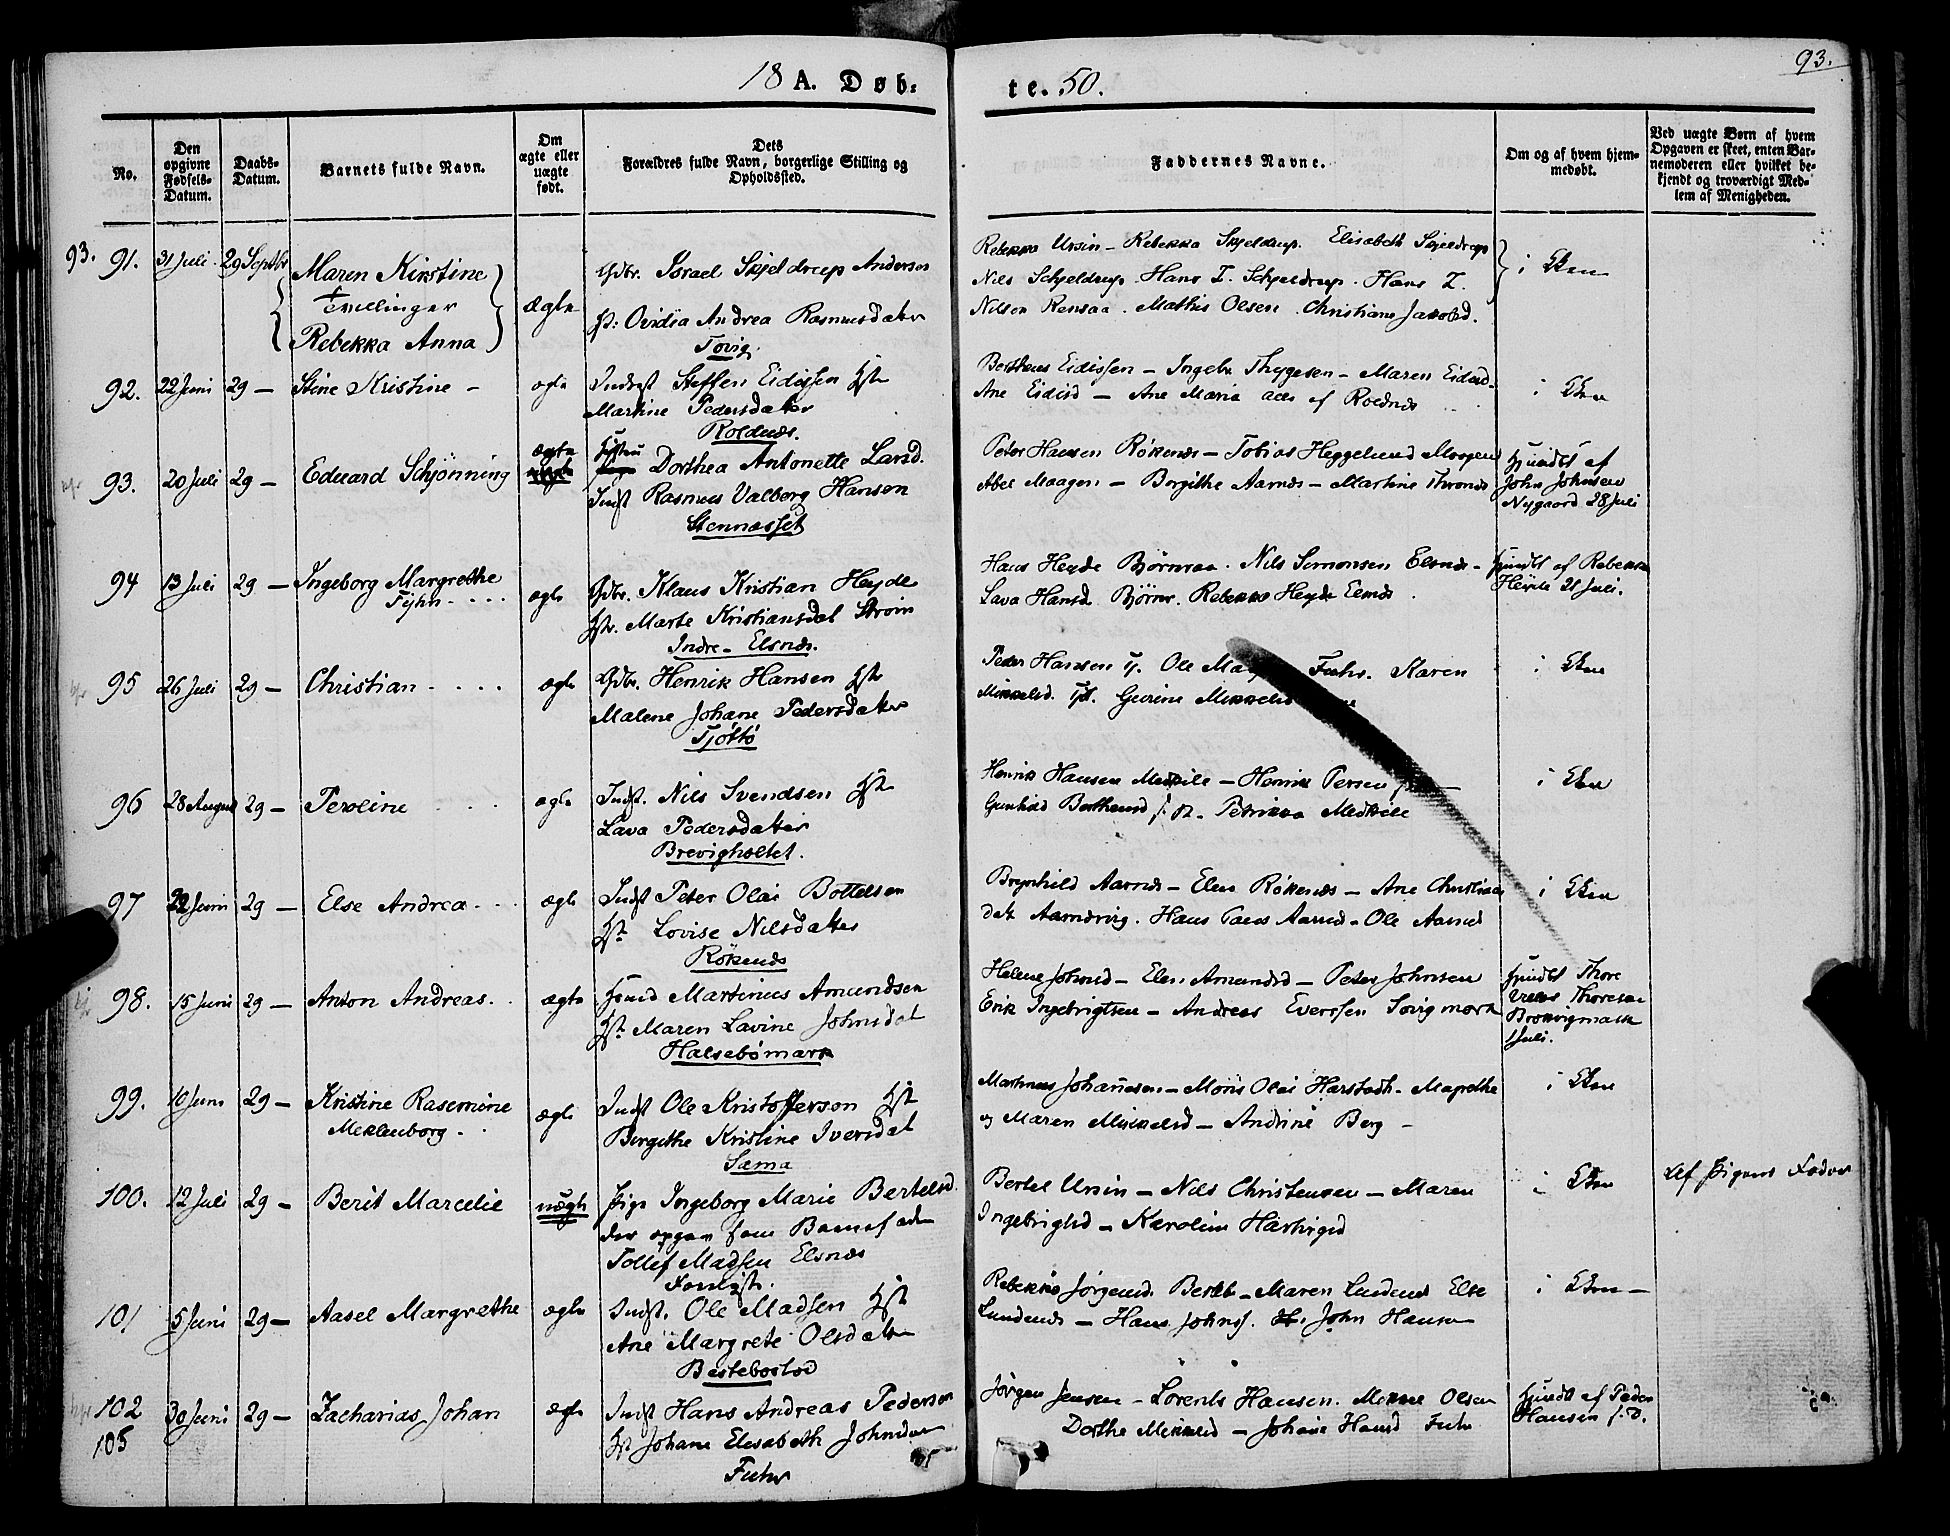 93.
18 A. Døb= te. 50.
No.
Den opgivne Fødsels-Datum.
Daabs-Datum.
Barnets fulde Navn.
Om ægte eller uægte født.
Dets Forældres fulde Navn, borgerlige Stilling og Opholdssted.
Faddernes Navne.
Om og af hvem hjemmedøbt.
Ved uægte Børn af hvem Opgaven er skeet, enten Barnemoderen eller hvilket bekjendt og troværdigt Medlem af Menigheden.
93. 91. 31 Juli 29 Septbr Maren Kirstine
Tvillinger
Rebekka Anna
Ægte
Gdbr. Israel Skjeldrup Andersen
Hst: Ovidia Andrea Rasmusdater
Tovig
Rebekka Ursin - Rebekka Skjeldrup. Elisabeth Skjeldrup
Nils Schjeldrup. Hans Z. Schjeldrup. Hans Z.
Nilsen Rensaa. Mathis Olsen. Christiane Jacobd.
i
92. 22 Juni 29 - Stine Kristine - ægte
Indst Steffen Eidissen Hst
Martine Pedersdater
Roldnæs.
Eidissen - Ingebr Thygesen - Maren
Ane Eidisd - Ane Maria alle af Roldnæs
i
93. 20 Juli 29 - Eduard Schjönning
ægte
uægte
Dorthea Antonette Larsd.
Indst Rasmus Valberg Hansen
Stennæsset
Peter Hansen Rökenæs - Tobias Heggelund
Abel - Birgithe Aarnæs - Martine
Hjmdbt af
John Johnsen
Nygaard 28 Juli
94 13 Juli 29 - Ingeborg Margrethe
ægte
Gdbr. Klaus Kristian Heyde
Hst. Marte Kristiansdat Strøm
Indre - Elsnæs.
Hans Heyde Bjørnraa. Nils Simonsen Elsnæs -
Lava Hansd Bjørnr. Rebekka Heyde
Hjmdbt af Rebekka
Heyde 21 Juli.
95 26 Juli 29 - Christian ægte
Gdbr. Henrik Hansen Hst
Malene Johane Pedersdater
Tjøttø
Peder Hansen Tj. Ole Fuhr. Karen
Mikkelsd. Gurine
i
96 28 August 29 - Peroline ægte
Indst. Nils Svendsen Hst
Lava Pedersdater
Brevigholtet.
Henrik Hansen Medkile - Henrik Persen
Gunhild s. st. Petrikka Medkile
i
97 22 Juni 29 - Else Andrea ægte
Indst Peter Olai Bottelsen
Hst Lovise Nilsdater
Rökenæs
Brynhild Aarnæs - Elen Rökenæs - Ane Christians
dat Hans Aarnæs - Ole Aarnæs
i
98. 15 Juni 29 - Anton Andreas. ægte
Hsmd Martinus Amundsen
Hst Maren Lavine Johnsdat
Halsebömark
Helene Johnsd - Elen Amundsd - Peter Johnsen
Erik Ingebrigtsen - Andreas Everssen Sovigmark
Hjmdbt Thore
Thoresen
Juli.
99. 10 Juni 29 - Kristine Rasemine
Meklenborg - ægte
Indst Ole Kristofferson Hst
Birgithe Kristine Iversdat
Sama
Martinus Johannesen - Mons Olai Harstadh - Magrethe
og Maren Mikkelsd - Andrine Berg -
i
100. 12 Juli 29 - Berit Marcelie uægte
Pige Ingeborg Marie Bertelsd.
der opgav som Barnefader
Tollef Madsen Elsnæs
Bertel Ursin - Nils Christensen - Maren
Ingebrigtsd - Karoline
i
Af Pigens Fader
101 5 Juni 29 - Aasel Margrethe ægte
Indst. Ole Madsen Hst
Ane Margrete Olsdater
Bestebostad
Rebekka Jörgensd - Maren Lundenæs Else
Lundenæs - Hans Johns. John Hansen
i
102 30 Juni 29 - Zacharias Johan ægte
105
Indst Hans Andreas Pederson
Hst Johane Elisabeth
Fuhr
Jörgen Jensen - Lorents Hansen. Olsen
Dorthe Mikkelsd - Johane Hansd Fuhr
Hjmdbt af Peder
Hansen s. D.